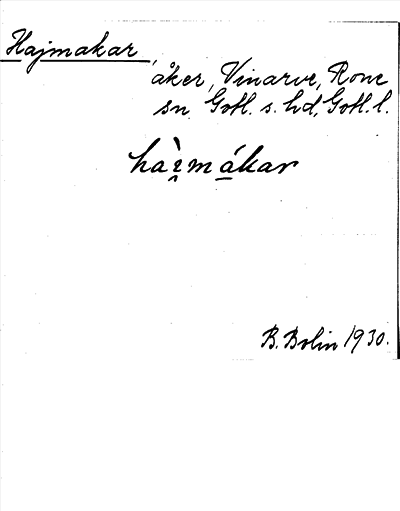 Hajmakar,
åker, Vinarve, Rone
sn Gotl. s. hd, Gotl. l.
haı̯̀mákar
B. Bolin 1930.